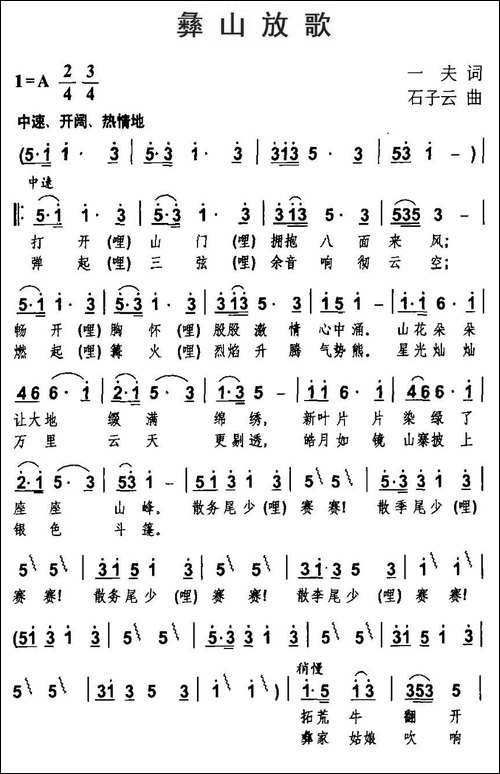 彝山放歌
1=A 2/4 3/4
一夫 词
石子云 曲
中速、开阔、热情地
(5·1 1· 3 | 5·3 1· 3 | 3 1 3 5· 3 | 5 3 1 1 -)|
中速
‖: 5·1 1· 3 | 5·3 1· 3 | 3 1 3 5· 3 | 5 3 5 3· - |
打开(哩)山门(哩)拥抱八面来风;
弹起(哩)三弦(哩)余音响彻云空;
5·1 1· 3 | 3·1 3· 3 | 3 1 3 5· 3 | 1 5 1 1 - | 1·1 6· 1 |
畅开(哩)胸怀(哩)股股激情心中涌。山花朵朵
燃起(哩)篝火(哩)烈焰升腾气势熊。星光灿灿
4 4 6 6· 1 | 2·1 5· 5 | 1·3 5 - | 1 1 6 6· 1 | 4 4 6 6· 1 |
让大地缀满绵绣,新叶片片染绿了
万里云天更剔透,皓月如镜山寨披上
2·1 5 3·5 | 5 3 1 - | 5·1 3 1 3 | 5 5 | 5·1 3 1 3 |
座座山峰。散务尾少(哩)赛赛!散季尾少(哩)
银色斗篷。
5 5 | 3 1 5 1 3 | 5 5 | 3 1 5 1 3 | 5 5 |
赛赛!散务尾少(哩)赛赛!散季尾少(哩)赛赛!
(5 1 3 1 3 | 5 5 | 5·1 3 1 3 | 5 5 | 3 1 5 1 3 |
稍慢
5 5 | 3 1 3 5· 3 | 5 5 1)| 1·5 1 3 | 3 5 3 5 |
拓荒牛翻开
彝家姑娘吹响